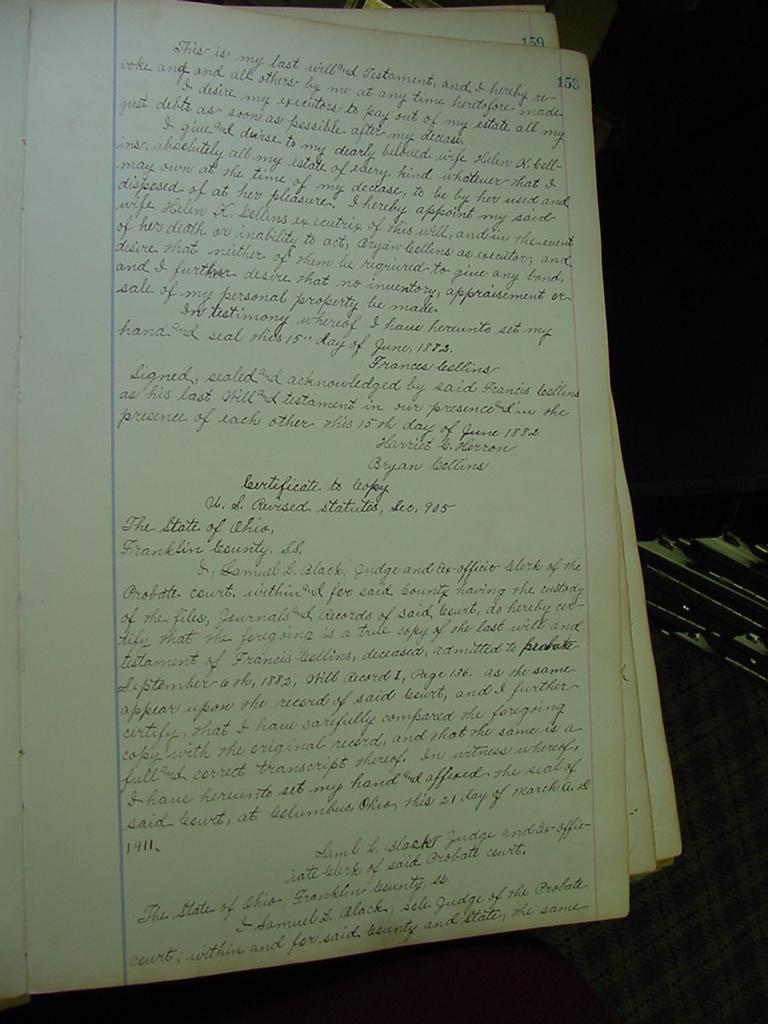 159
153
This is my last will and Testament, and I hereby re-
voke any and all others by me at any time heretofore made
I desire my executors to pay out of my estate all my
just debts as soon as possible after my decease.
I give and devise to my dearly beloved wife Helen K. Coll-
ins, absolutely all my estate of every kind whatever that I
may own at the time of my decease, to be by her used and
disposed of at her pleasure. I hereby appoint my said
wife Helen K. Collins executrix of this will, and in the event
of her death or inability to act, Bryan Collins as executor; and
desire that neither of them be required to give any bond,
and I further desire that no inventory, appraisement or
sale of my personal property be made.
In testimony whereof I have hereunto set my
hand and seal this 15" day of June, 1882.
Francis Collins
Signed, sealed and acknowledged by said Francis Collins
as his last Will and testament in our presence and in the
presence of each other this 15th day of June 1882
Harriet C. Herron
Bryan Collins
Certificate to Copy
U. S. Revised Statutes, Sec. 905
The State of Ohio,
Franklin County. SS.
I, Samuel L. Black, Judge and Ex-officio Clerk of the
Probate court. within and for said County having the custody
of the files, Journals and Records of said Court, do hereby cer-
tify that the foregoing is a true copy of the last will and
testament of Francis Collins, deceased, admitted to probate
September 6th, 1882, Will Record I, Page 186. as the same
appear upon the record of said Court, and I further
certify, that I have carefully compared the foregoing
copy with the original record, and that the same is a
full and correct transcript thereof. In witness whereof,
I have hereunto set my hand and affixed the seal of
said Court, at Columbus, Ohio, this 21 day of March A. D
1911.
Saml L. Black Judge and Ex-offic-
iate Clerk of said Probate court.
The State of Ohio, Franklin County, ss.
I Samuel L. Black, sole Judge of the Probate
court; within and for said County and State, the same